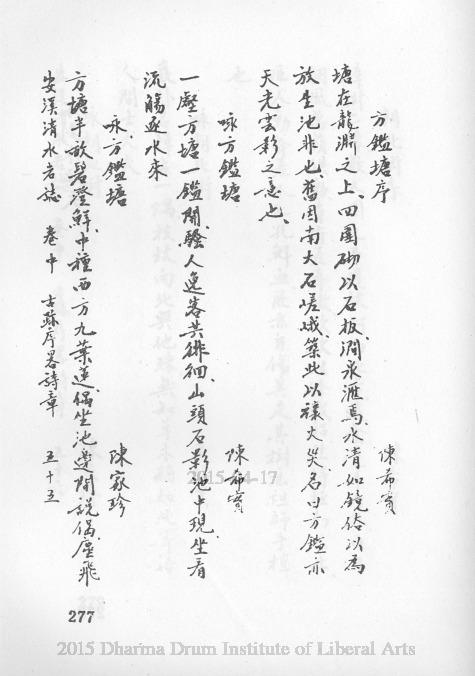 方鑑塘序
陳希實
塘在龍瀨之上、四圍砌以石板、澗泉滙焉、水清如鏡、俗以為
放生池非也、舊因南大石嵯峨、築此以禳火災、名曰方鑑亦
天光雲影之意也、
咏方鑑塘
陳希實
一壑方塘一鑑開、騷人逸客共徘徊、山頭石影池中現、坐看
流觴逐水來
咏方鑑塘
陳家珍
方塘半畝碧澄鮮、中種西方九葉蓮、偶坐池邊閒說偈、塵飛
安溪清水岩誌 卷中 古蹟序畧詩章 五十五
277
2015-04-17
2015 Dharma Drum Institute of Liberal Arts